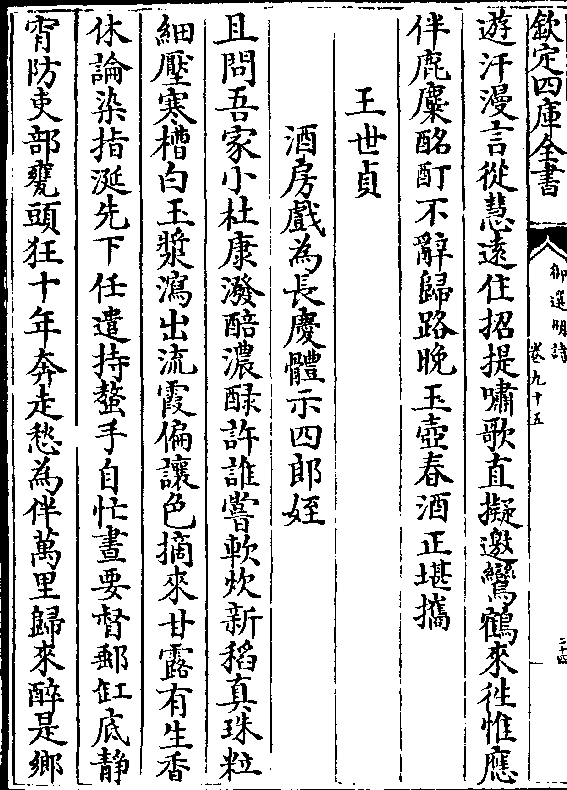 欽定四庫全書
御選明詩
卷九十五
二十四
遊汗漫言從慧遠住招提嘯歌直擬邀鸞鶴來往惟應
伴鹿麋酩酊不辭歸路晚玉壺春酒正堪攜
王世貞
酒房戲為長慶體示四郎姪
且問吾家小杜康潑醅濃醁許誰嘗軟炊新稻真珠粒
細壓寒槽白玉漿瀉出流霞偏讓色摘來甘露有生香
休論染指涎先下任遣持螯手自忙晝要督郵缸底靜
宵防吏部甕頭狂十年奔走愁為伴萬里歸來醉是鄉